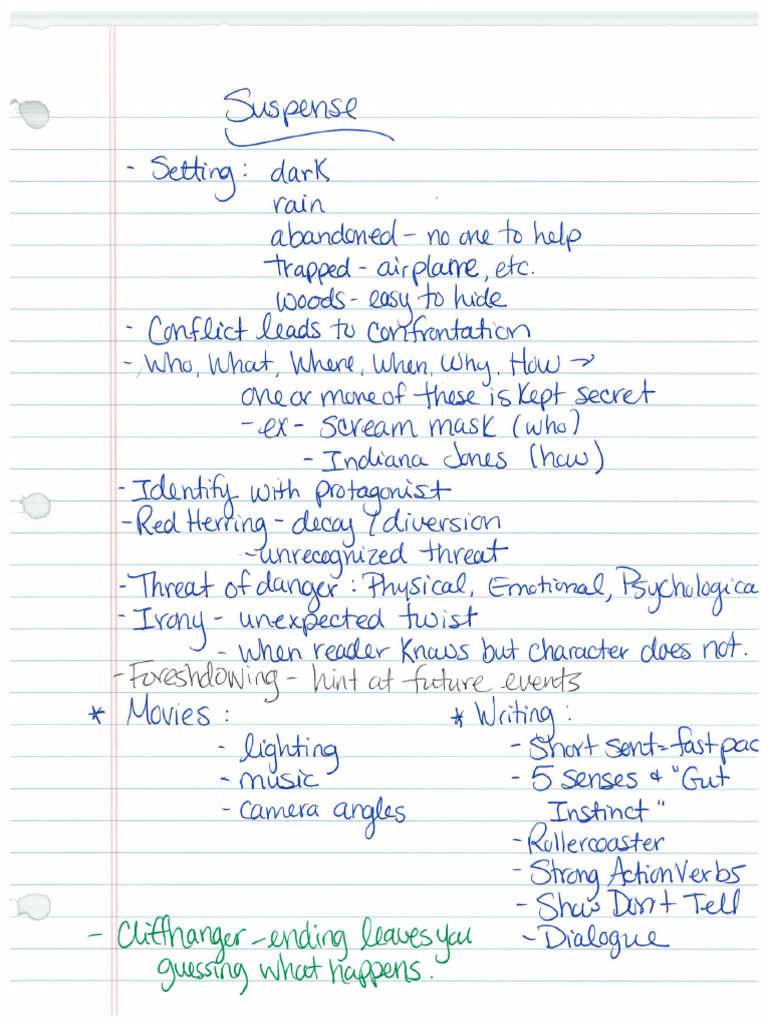 Suspense
- Setting: dark
rain
abandoned - no one to help
trapped - airplane, etc.
woods - easy to hide
- Conflict leads to confrontation
- Who, What, Where, When, Why, How →
one or more of these is kept secret
- ex - Scream mask (who)
- Indiana Jones (how)
- Identify with protagonist
- Red Herring - decoy / diversion
- unrecognized threat
- Threat of danger: Physical, Emotional, Psychologica
- Irony - unexpected twist
- when reader knows but character does not.
- Foreshdowing - hint at future events
* Movies:
- lighting
- music
- camera angles
* Writing:
- Short sent = fast pac
- 5 senses & "Gut
Instinct"
- Rollercoaster
- Strong Action Verbs
- Show Don't Tell
- Dialogue
- Cliffhanger - ending leaves you
guessing what happens.